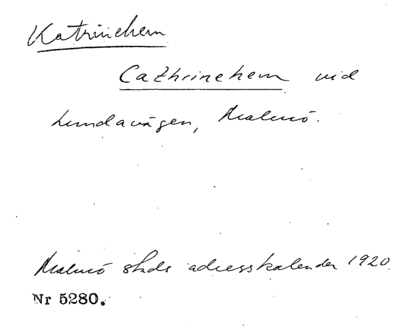 Katrinehem
Cathrinehem vid
Lundavägen, Malmö.
Malmö stads adresskalender 1920
Nr 5280.